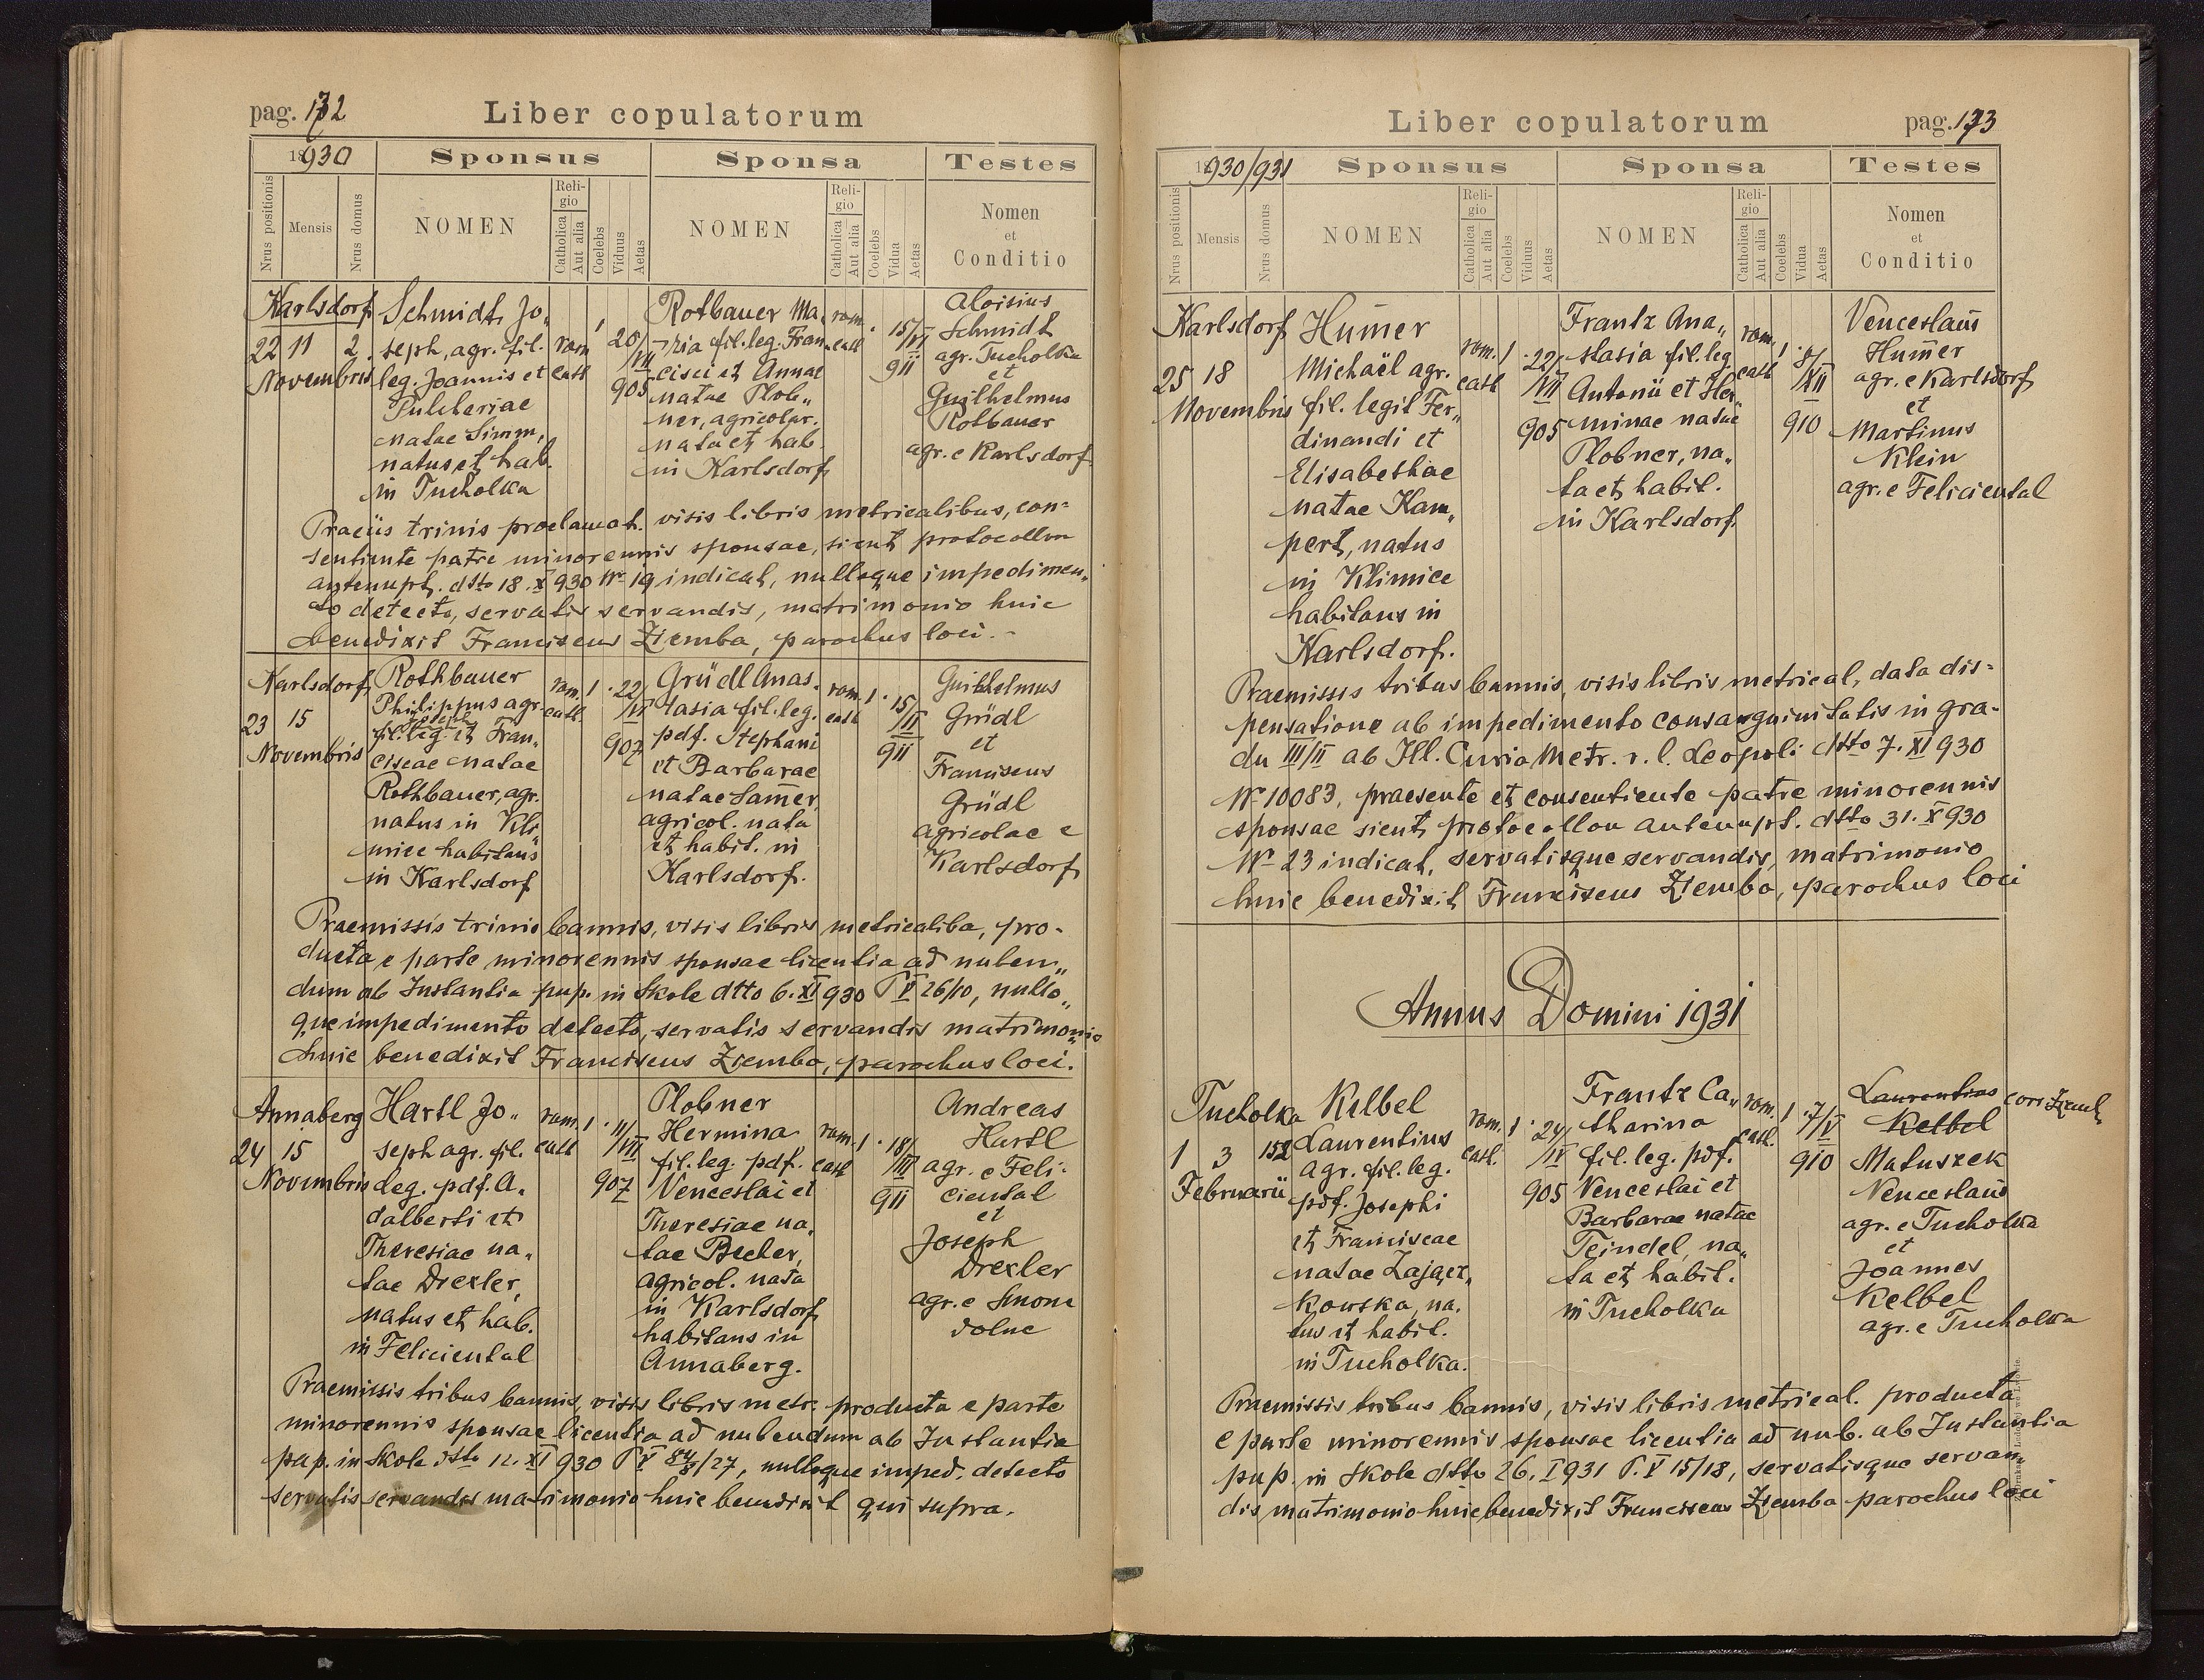 pag. 172
Liber copulatorum
18930
Sponsus
Sponsa
Testes
Nrus positionis
Mensis
Nrus domus
NOMEN
Religio
Catholica
Aut alia
Coelebs
Viduus
Aetas
NOMEN
Religio
Catholica
Aut alia
Coelebs
Vidua
Aetas
Nomen
et
Conditio
Karlsdorf
22 11 2
Novembris
Schmidt Jo„
seph, agr. fil.
leg. Joannis et
Pulcheriae
natae Simm,
natus et hab.
in Tucholka
rom
cath
1
20/
VII
905
Rotbauer Ma„
ria fil. leg. Fran„
cisci et Annae
natae Plob„
ner, agricolar.
nata et hab.
in Karlsdorf
rom.
cath
15/
VI
911
Aloisius
Schmidt
agr. Tucholka
et
Guilhelmus
Rotbauer
agr. e Karlsdorf
Praeiis trinis proclamat. visis libris metricalibus, con-
sentiente patre minorennis sponsae, sicut protocollon
antenupt. dtto 18. X 930 Nº 19 indicat, nulloque impedimen„
to detecto, servatis servandis, matrimonio huic
benedixit Franciscus Ziemba, parochus loci.-
Karlsdorf
23 15
Novembris
Rothbauer
Philippus agr.
Joseph
fil. leg et Fran„
ciscae natae
Rothbauer, agr.
natus in Kli„
mice habitans
in Karlsdorf
rom. 1
cath.
22/
VI
907
Gründl Anas„
tasia fil. leg.
pdf. Stephani
et Barbarae
natae Samer,
agricol. nata
et habit. in
Karlsdorf.
rom. 1
cath
15/
II
911
Guilhelmus
Gründl
et
Franciscus
Gründl
agricolae e
Karlsdorf
Praemissis trinis bannis, visis libris metricalibs, pro-
ducta e parte minorennis sponsae licentia ad nuben„
dum ab Instantia pup. in Skole dtto 6. XI 930 P V 26/10, nullo„
que impedimento detecto, servatis servandis matrimonio
huic benedixit Franciscus Ziemba, parochus loci.
Annaberg
24 15
Novembris
Hartl Jo„
seph agr. fil.
leg. pdf. A„
dalberti et
Theresiae na„
tae Drexler,
natus et hab.
in Feliciental
rom. 1
cath
11/
VII
907
Plobner
Hermina
fil. leg. pdf.
Venceslai et
Theresiae na„
tae Becher,
agricol. nata
in Karlsdorf
habitans in
Annaberg.
rom. 1
cath
18/
III
911
Andreas
Hartl
agr. e Feli-
ciental
et
Joseph
Drexler
agr. e Smorze
dolne
Praemissis tribus bannis, visis libris metr. producta e parte
minorennis sponsae licentia ad nubendum ab Instantia
pup. in Skole dtto 12. XI 930 P V 84/8/27, nulloque imped. detecto
servatis servandis matrimonio huic benedixit qui supra.
Liber copulatorum
pag. 173
1930/931
Sponsus
Sponsa
Testes
Nrus positionis
Mensis
Nrus domus
NOMEN
Religio
Catholica
Aut alia
Coelebs
Viduus
Aetas
NOMEN
Religio
Catholica
Aut alia
Coelebs
Vidua
Aetas
Nomen
et
Conditio
Karlsdorf
25 18
Novembris
Hum̄er
Michaël agr.
fil. legit Fer„
dinandi et
Elisabethae
natae Kam„
pert, natus
in Klimice
habitans in
Karlsdorf.
rom. 1
cath
22/
VII
905
Frantz Ana„
stasia fil. leg
Antonii et Her„
minae natae
Plobner, na„
ta et habit.
in Karlsdorf
rom. 1
cath
8/
XII
910
Venceslaus
Hum̄er
agr. e Karlsdorf
et
Martinus
Klein
agr. e Feliciental
Praemissis tribus bannis, visis libris metrical, data dis-
pensatione ab impedimento consanguinitatis in gra-
du III/II ab Ill. Curia Metr. r. l. Leopoli dtto 7. XI 930
Nº 10083, praesente et consentiente patre minorennis
sponsae sicut protocollon antenupt. dtto 31. X 930
Nº 23 indicat, servatisque servandis, matrimonio
huic benedixit Franciscus Ziemba, parochus loci
Annus Domini 1931
Tucholka
1 3 152
Februarii
Kelbel
Laurentius
agr. fil. leg.
pdf. Josephi
et Franciscae
natae Zającz„
kowska, na„
tus et habit.
in Tucholka.
rom. 1
cath.
24/
IV
905
Frantz Ca„
tharina
fil. leg. pdf.
Venceslai et
Barbarae natae
Teindel, na„
ta et habit.
in Tucholka
rom. 1
cath.
7/
V
910
Laurentius corr. Ziemb.
Kelbel
Matuszek
Venceslaus
agr. e Tucholka
et
Joannes
Kelbel
agr. e Tucholka
Praemissis tribus bannis, visis libris metrical. producta
e parte minorennis sponsae licentia ad nub. ab Instantia
pup. in Skole dtto 26. I 931 P. V 15/18, servatisque servan„
dis matrimonio huic benedixit Franciscus Ziemba parochus loci